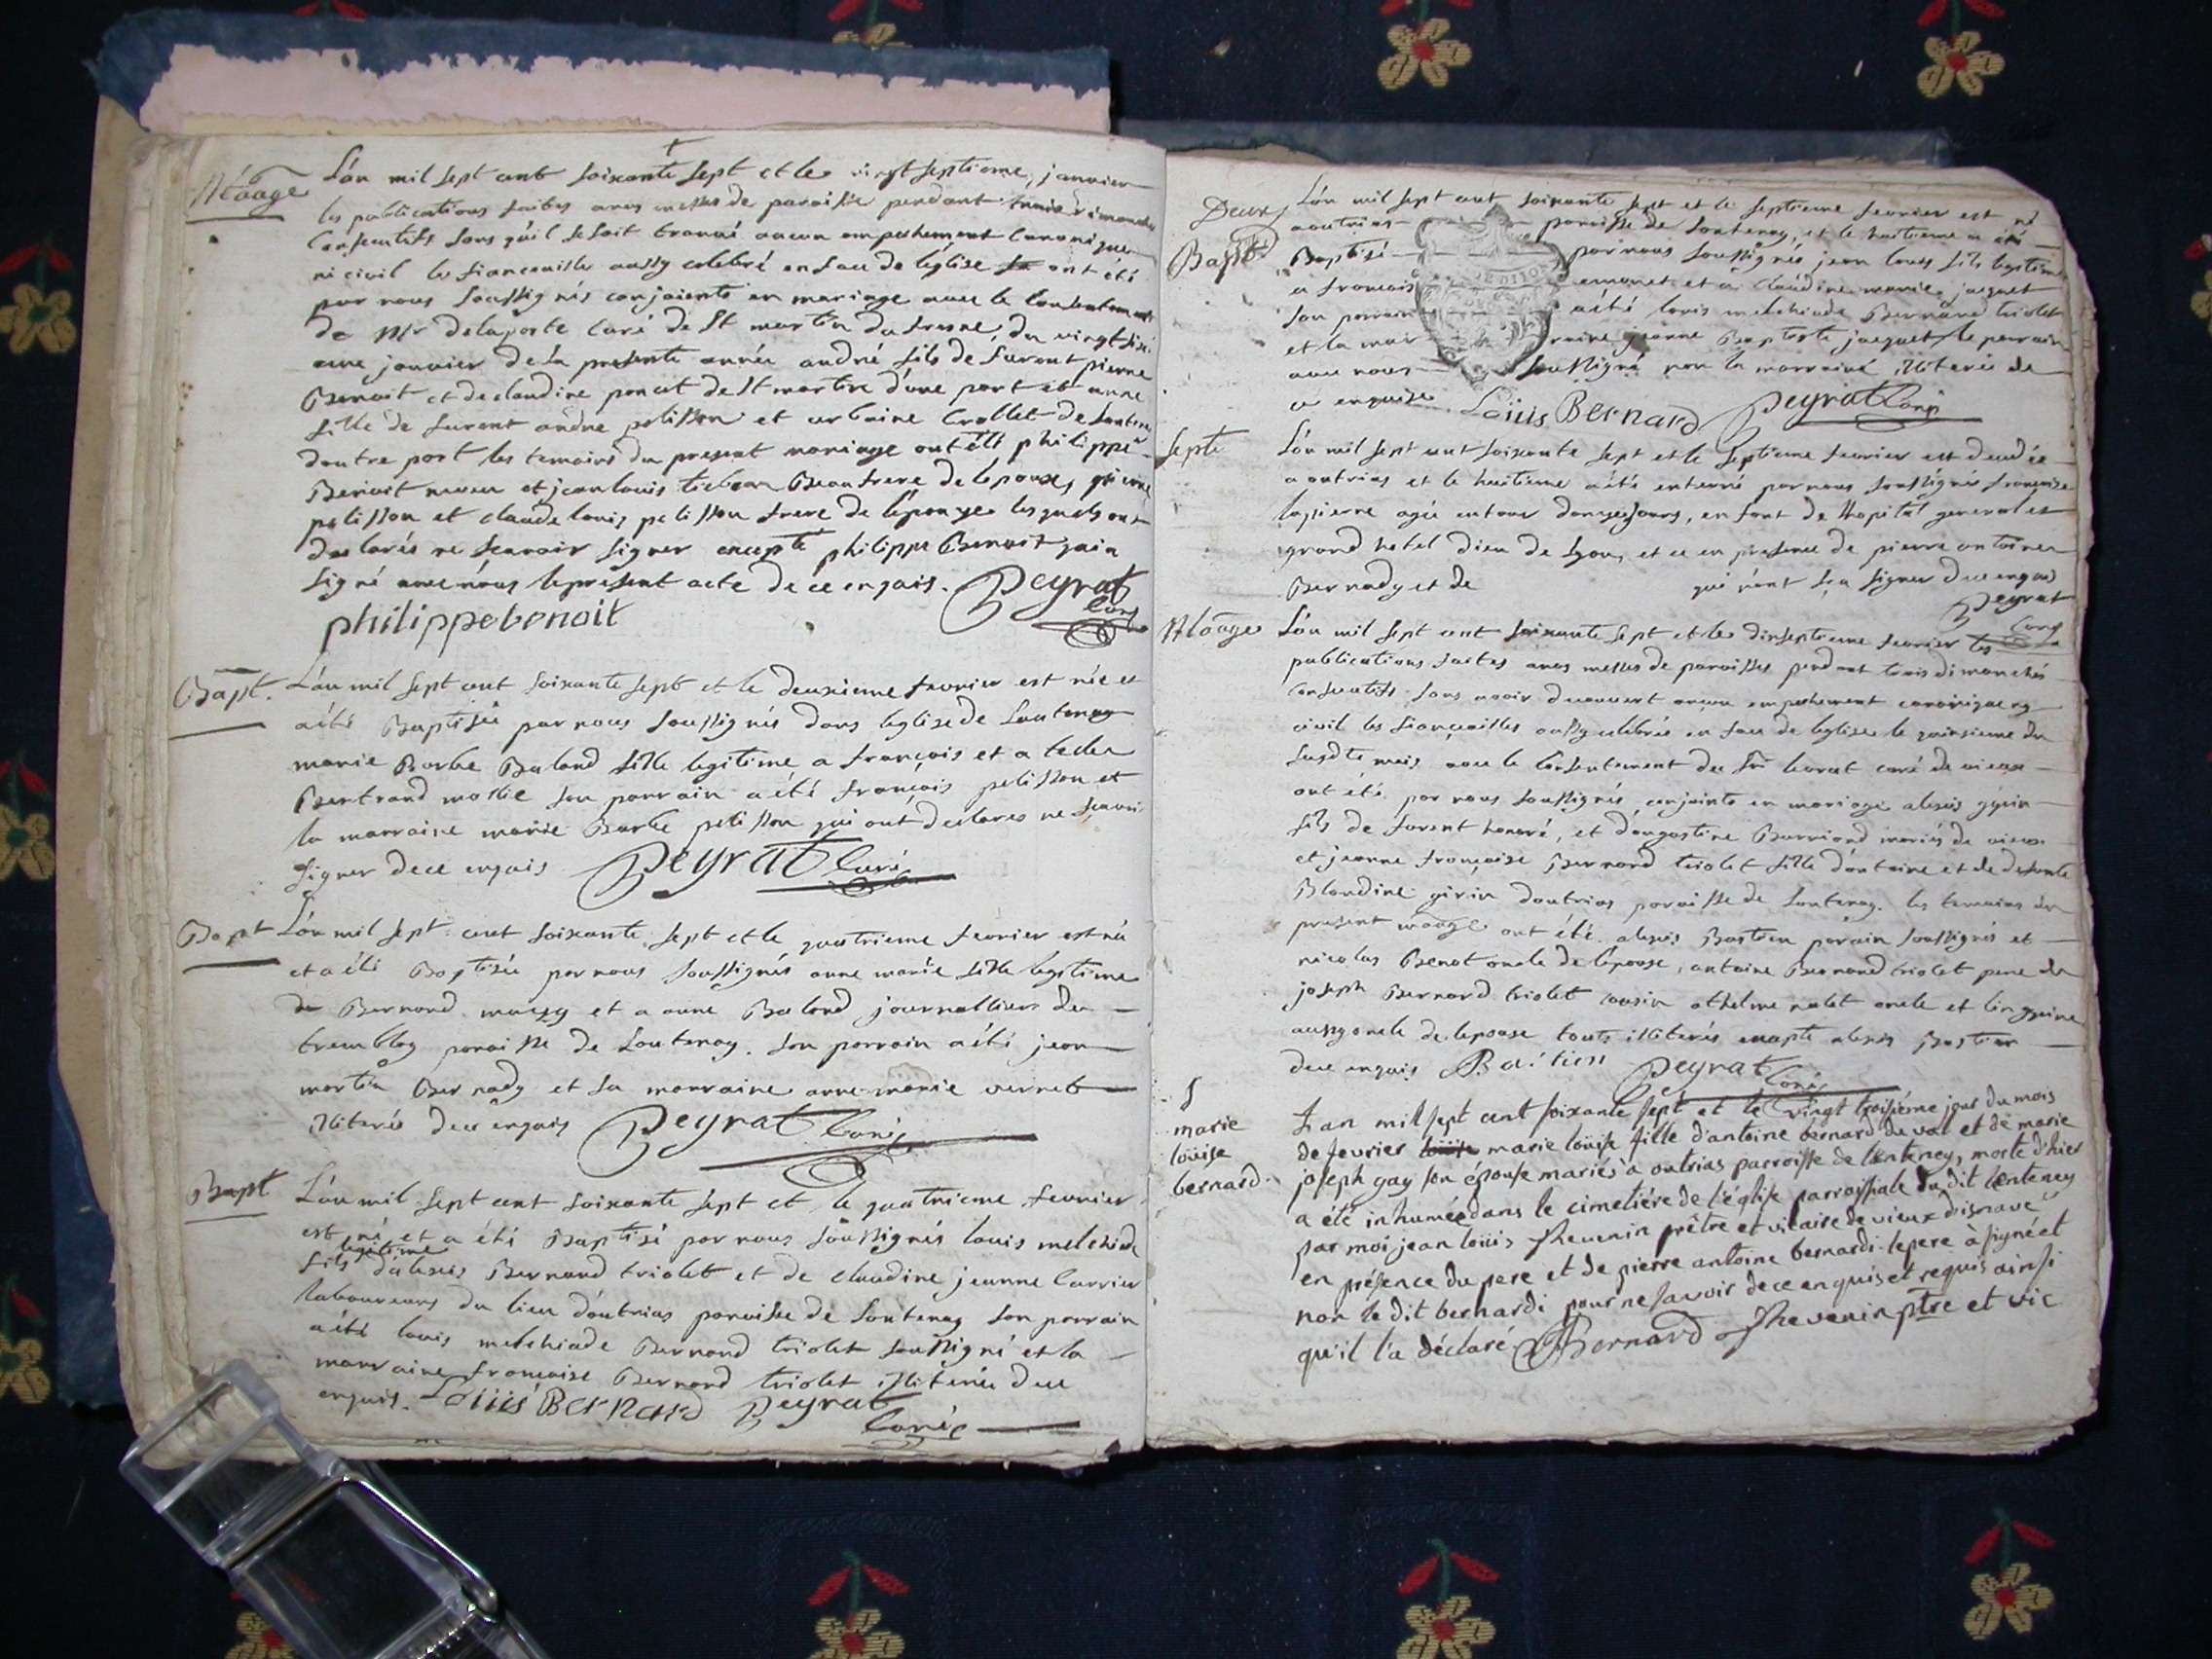 Maage
L'an mil sept cent soixante sept et le vingt septieme janvier
les publications faites à nos messes de paroisse pendant trois dimanches
consecutifs sans qu'il se soit trouvé aucun empechement canonique
ni civil les fiancailles aussy celebré en face de leglise ont été
par nous soussignés conjoints en mariage avec le consentement
de Mr delaporte curé de St martin du fresne, du vingt sixi
eme janvier de la presente année andré fils de furent pierre
Benoit et de claudine poncet de St martin d'une part et anne
fille de furent andre pelisson et Crollet de Lantenay
d'autre part les temoins du present mariage ont été philippe
Benoit neveu et jean louis beaufrere de lepoux, pierre
pelisson et claude louis pelisson frere de l'épouse lesquels ont
declarés ne scavoir signer excepté philippe Benoit qui a
signé avec nous le present acte de ce enquis. Peyrat
Curé
philippe benoit
Bapt.
L'an mil sept cent soixante sept et le deuxieme fevrier est née et
a été Baptisée par nous soussignés dans leglise de Lantenay
marie Barbe Baland fille legitime a françois et a
Bertrand son parrain a été françois pelisson et
la marraine marie Barbe pelisson qui ont declarés ne scavoir
signer de ce enquis Peyrat Curé
Bapt
L'an mil sept cent soixante sept et le quatrieme fevrier est née
et a été Baptisée par nous soussignés anne marie fille legitime
de Bernard et a anne Baland journalliers du
tremblay paroisse de Lantenay. son parrain a été jean
martin Bernady et sa marraine anne marie vernet
illiterés de ce enquis Peyrat Curé
Bapt
L'an mil sept cent soixante sept et le quatrieme fevrier
est né et a été Baptisé par nous soussignés louis melchiade
fils legitime d'alexis Bernard triolet et de claudine jeanne Carrier
laboureurs du lieu d'outrias paroisse de Lantenay son parrain
a été louis melchiade Bernard triolet soussigné et la
marraine françoise Bernard triolet illiterée de ce
enquis. Loüis Bernard Peyrat
Curé
Deux
Bapté
L'an mil sept cent soixante sept et le septieme fevrier est né
a outrias paroisse de Lantenay, et le huitieme a été
Baptisé par nous soussignés jean louis fils legitime
a francois et a claudine marie jacquet
son parrain a été louis melchiade Bernard triolet
et la mar raine jeanne Baptiste jacquet le parrain
avec nous soussigné non la marraine illiterée de
ce enquise Loüis Bernard Peyrat Curé
Septe
L'an mil sept cent soixante sept et le septieme fevrier est decedée
a outrias et le huitieme a été enterré par nous soussignés francoise
lapierre agée environ jours, enfant de l'hopital general et
grand hotel dieu de Lyon, et ce en presence de pierre antoine
Bernady et de qui n'ont sçu signer de ce enquis
Peyrat
Curé
Maage
L'an mil sept cent soixante sept et le dixseptieme fevrier les
publications faites a nos messes de paroisses pendant trois dimanches
consecutifs sans avoir decouvert aucun empechement canonique ny
civil les fiançailles aussy celebrée en face de leglise le quinsieme du
susdte mois avec le consentement du Sr curé de vieux
ont été par nous soussignés conjoints en mariage alexis
fils de furent honoré, et d'augustine mariés de vieux
et jeanne françoise Bernard triolet fille d'antoine et de defunte
Blandine girin d'outrias paroisse de Lantenay. les temoins du
present maage ont été alexis Bastien parain soussignés et
nicolas Benot oncle de lepouse, antoine Bernard triolet pere
joseph Bernard triolet cousin anthelme oncle et
aussy oncle de lepouse touts illiterés excepté alexis Bastien
de ce enquis Bastien Peyrat Curé
S
marie
loüise
bernard.
L'an mil sept cent soixante sept et le vingt troisieme jour du mois
de fevrier marie loüise fille d'antoine bernard du val et de marie
joseph gay son épouse mariés à outrias parroisse de lenteney, morte d'hier
a été inhumée dans le cimetiére de l'église parroissiale du dit lenteney
par moi jean loüis thevenin prêtre et vicaire de vieux disnave
en présence du pere et de pierre antoine bernardi. le pere à signé et
non le dit bernardi pour ne savoir de ce enquis et requis ainsi
qu'il l'a déclaré Bernard Thevenin ptre et vic